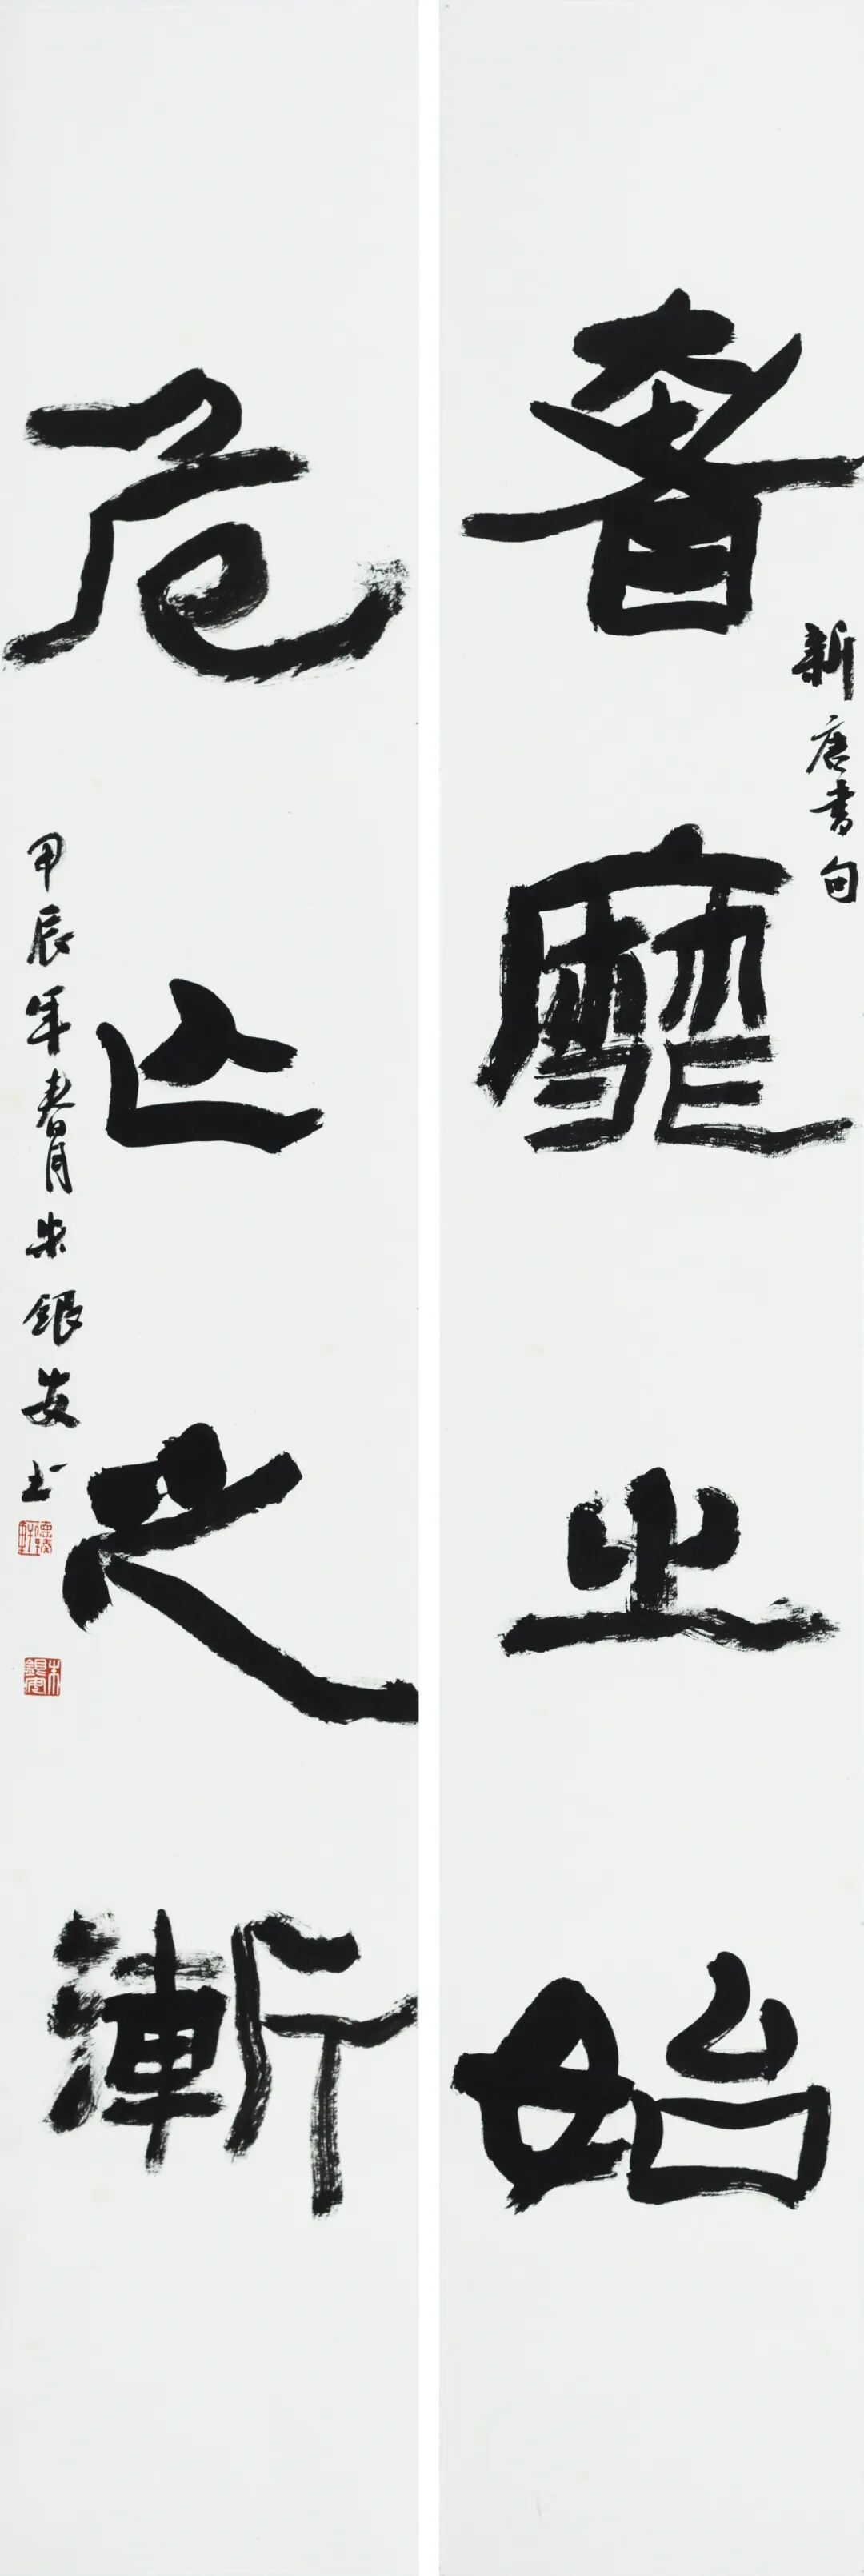 奢靡之始
新唐书句
危亡之渐
甲辰年春月朱银安书
朱银安